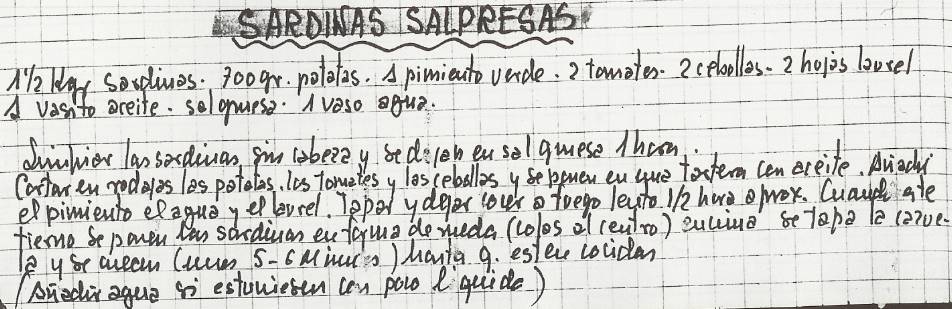 SARDINAS SALPRESAS
1 1/2 kgr sardinas. 700 gr. patatas. 1 pimiento verde. 2 tomates. 2 cebollas. 2 hojas laurel
1 vasito aceite. sal gruesa. 1 vaso agua.
Limpiar las sardinas, sin cabeza y se dejan en sal gruesa 1 hora.
Cortar en rodajas las patatas, los tomates y las cebollas y se ponen en una tartera con aceite. Añadir
el pimiento el agua y el laurel. Tapar y dejar cocer a fuego lento 1/2 hora aprox. Cuando este
tierno se ponen las sardinas en forma de rueda (colas al centro) encima se tapa la cazue-
la y se cuecen (unos 5-6 minutos) hasta q. esten cocidas
(Añadir agua si estuviesen con poco liquido)